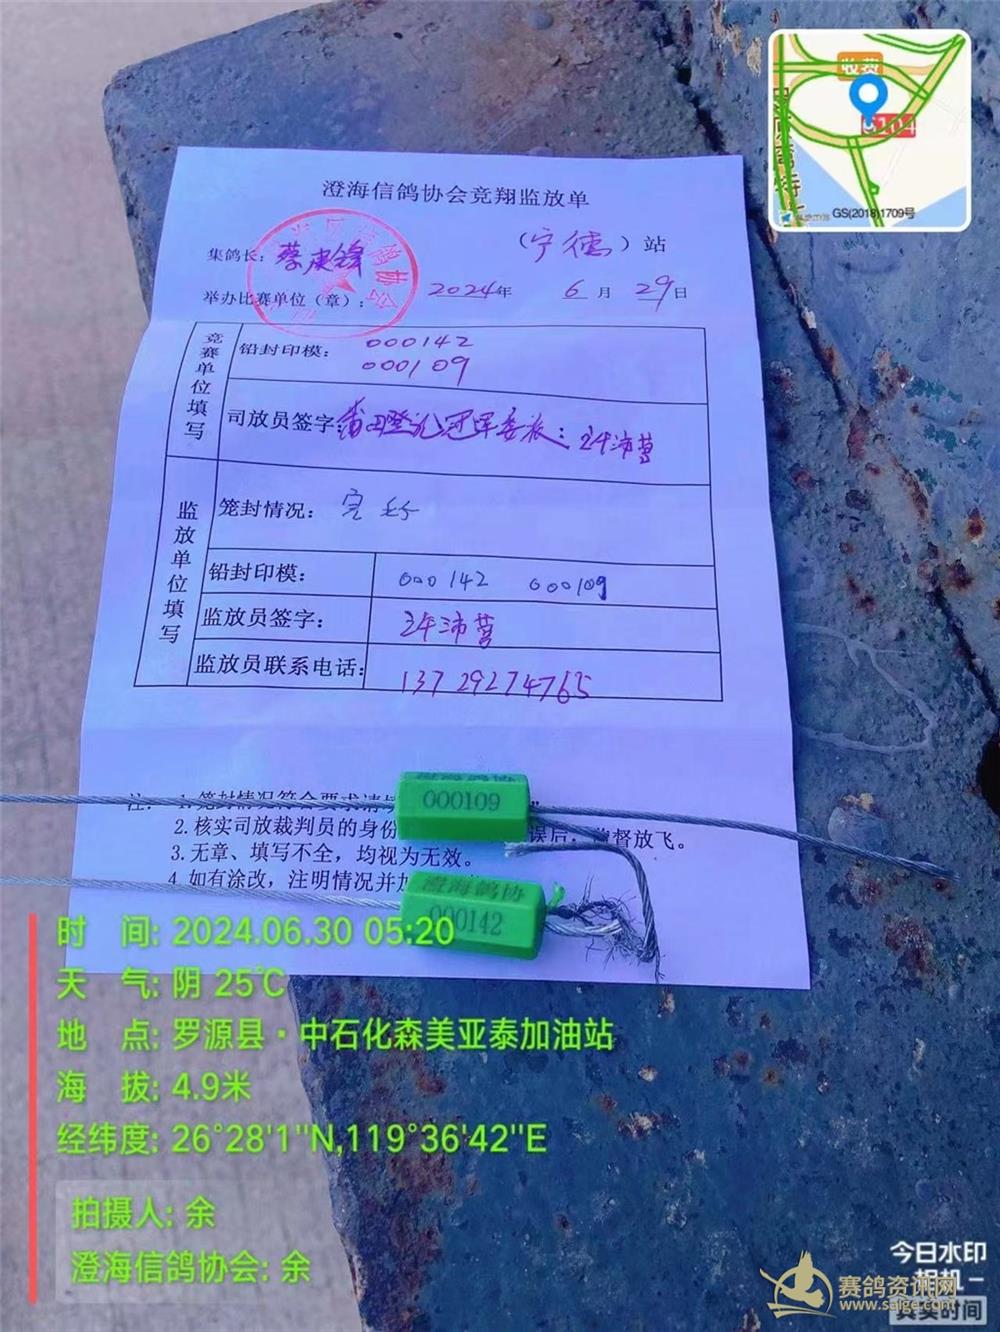 收费
S104
GS(2018)1709号
澄海信鸽协会竞翔监放单
（宁德）站
集鸽长：
举办比赛单位（章）：
2024年 6月 29日
竞赛单位填写
铅封印模：
000142
000109
司放员签字：
监放单位填写
笼封情况：完好
铅封印模：
000142 000109
监放员签字：
监放员联系电话：
13729274765
注：1.笼封情况符合要求请
2.核实司放裁判员的身份
误后，监督放飞。
3.无章、填写不全，均视为无效。
4.如有涂改，注明情况并加
000109
澄海鸽协
000142
时 间: 2024.06.30 05:20
天 气: 阴 25℃
地 点: 罗源县·中石化森美亚泰加油站
海 拔: 4.9米
经纬度: 26°28'1"N,119°36'42"E
拍摄人: 余
澄海信鸽协会: 余
今日水印
相机
真实时间
赛鸽资讯网
www.saige.com